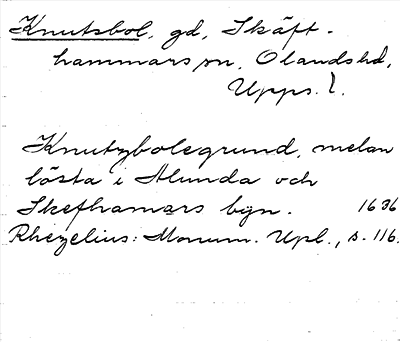 Knutsbol, gd, Skäft-
hammars sn, Olandshd,
Upps. l.
Knutzbolegrund, melan
lösta i Alunda och
Skefhamars byn. 1636
Rhezelius: Monum. Upl., s. 116.